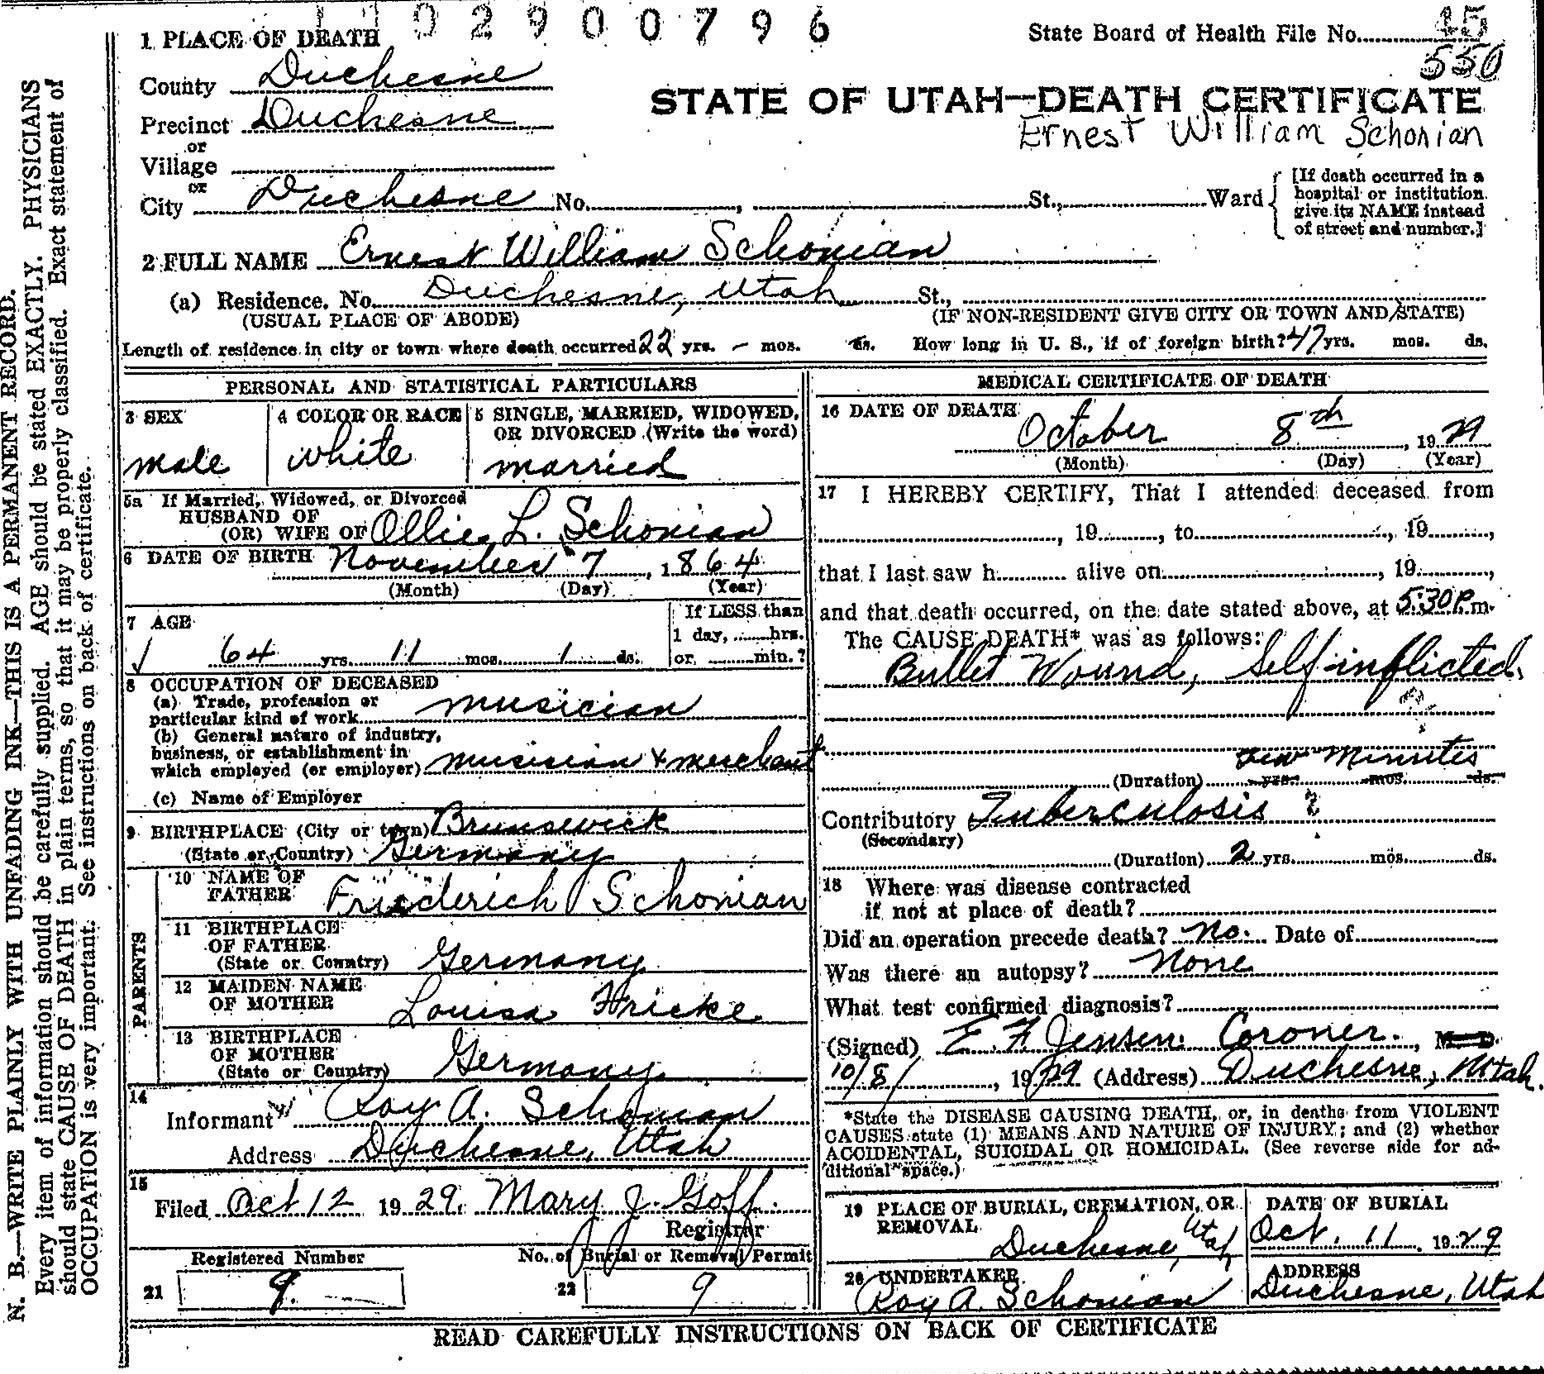 02900796
State Board of Health File No. 45
550
1 PLACE OF DEATH
County Duchesne
STATE OF UTAH—DEATH CERTIFICATE
Precinct Duchesne
Ernest William Schonian
or
Village
or
City Duchesne No. , St., Ward
[If death occurred in a
hospital or institution
give its NAME instead
of street and number.]
2 FULL NAME Ernest William Schonian
(a) Residence. No. Duchesne, Utah St.,
(USUAL PLACE OF ABODE) (IF NON-RESIDENT GIVE CITY OR TOWN AND STATE)
Length of residence in city or town where death occurred 22 yrs. – mos. ds. How long in U. S., if of foreign birth? 47 yrs. mos. ds.
PERSONAL AND STATISTICAL PARTICULARS
3 SEX
male
4 COLOR OR RACE
white
5 SINGLE, MARRIED, WIDOWED,
OR DIVORCED (Write the word)
married
5a If Married, Widowed, or Divorced
HUSBAND OF
(OR) WIFE OF Ollie L. Schonian
6 DATE OF BIRTH November 7, 1864
(Month) (Day) (Year)
7 AGE
64 yrs. 11 mos. 1 ds.
If LESS than
1 day, hrs.
or min.?
8 OCCUPATION OF DECEASED
(a) Trade, profession or
particular kind of work musician
(b) General nature of industry,
business, or establishment in
which employed (or employer) musician & merchant
(c) Name of Employer
9 BIRTHPLACE (City or town) Brunswick
(State or Country) Germany
PARENTS
10 NAME OF
FATHER Friederich Schonian
11 BIRTHPLACE
OF FATHER
(State or Country) Germany
12 MAIDEN NAME
OF MOTHER Louisa Fricke
13 BIRTHPLACE
OF MOTHER
(State or Country) Germany
14
Informant Roy A. Schonian
Address Duchesne, Utah
15
Filed Oct 12 1929. Mary J. Goff
Registrar
Registered Number No. of Burial or Removal Permit
21 9 22 9
MEDICAL CERTIFICATE OF DEATH
16 DATE OF DEATH
October 8th, 1929
(Month) (Day) (Year)
17 I HEREBY CERTIFY, That I attended deceased from
, 19 , to , 19 ,
that I last saw h alive on , 19 ,
and that death occurred, on the date stated above, at 5:30 P.m.
The CAUSE DEATH* was as follows:
Bullet Wound, Self inflicted.
few Minutes
(Duration) yrs. mos. ds.
Contributory Tuberculosis ?
(Secondary)
(Duration) 2 yrs. mos. ds.
18 Where was disease contracted
if not at place of death?
Did an operation precede death? No. Date of
Was there an autopsy? None
What test confirmed diagnosis?
(Signed) E F Jensen. Coroner., M. D.
10/8/, 1929 (Address) Duchesne, Utah.
*State the DISEASE CAUSING DEATH, or, in deaths from VIOLENT
CAUSES state (1) MEANS AND NATURE OF INJURY; and (2) whether
ACCIDENTAL, SUICIDAL OR HOMICIDAL. (See reverse side for ad-
ditional space.)
19 PLACE OF BURIAL, CREMATION, OR
REMOVAL
Duchesne, Utah
DATE OF BURIAL
Oct. 11. 1929
20 UNDERTAKER
Roy A. Schonian
ADDRESS
Duchesne, Utah
READ CAREFULLY INSTRUCTIONS ON BACK OF CERTIFICATE
N. B.—WRITE PLAINLY WITH UNFADING INK—THIS IS A PERMANENT RECORD.
Every item of information should be carefully supplied. AGE should be stated EXACTLY. PHYSICIANS
should state CAUSE OF DEATH in plain terms, so that it may be properly classified. Exact statement of
OCCUPATION is very important. See instructions on back of certificate.